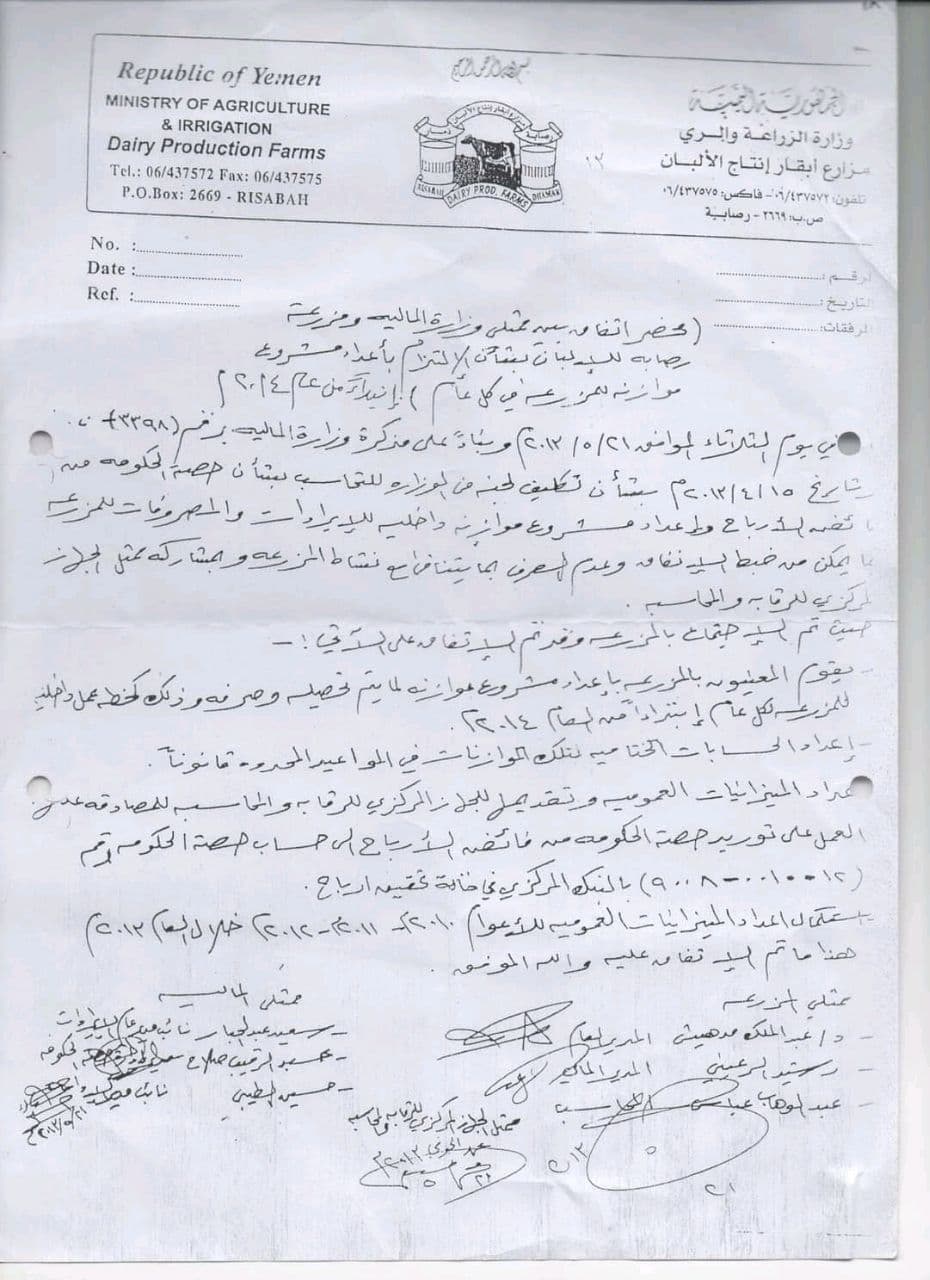 بسم الله الرحمن الرحيم
Republic of Yemen
MINISTRY OF AGRICULTURE
& IRRIGATION
Dairy Production Farms
Tel.: 06/437572 Fax: 06/437575
P.O.Box: 2669 - RISABAH
RISABAH DAIRY PROD. FARMS DHAMAR
الجمهورية اليمنية
وزارة الزراعة والري
مزارع أبقار إنتاج الألبان
تلفون: ٠٦/٤٣٧٥٧٢ - فاكس: ٠٦/٤٣٧٥٧٥
ص.ب: ٢٦٦٩ - رصابة
١٢
No. :
Date :
Ref. :
الرقم:
التاريخ:
المرفقات:
(محضر اتفاق بين ممثلي وزارة الماليه ومزرعة
رصابه للالبان بشأن الالتزام بأعداد مشروع
موازنه للمزرعه في كل عام) إبتداءً من عام ٢٠١٤م
في يوم الثلاثاء الموافق ٢٠١٣/٥/٢١ وبناءً على مذكرة وزارة الماليه برقم (٣٣٩٨)
وتاريخ ٢٠١٣/٤/١٥م بشأن تكليف لجنه من الوزاره للتحاسب بشأن حصة الحكومه من
فائض الأرباح وإعداد مشروع موازنه داخليه للإيرادات والمصروفات للمزرعه
بما يمكن من ضبط الانفاق وعدم الصرف بما يتنافى مع نشاط المزرعه وبمشاركة ممثل الجهاز
المركزي للرقابه والمحاسبه .
حيث تم الإجتماع بالمزرعه وقد تم الإتفاق على الآتي :-
- يقوم المعنيون بالمزرعه بإعداد مشروع موازنه لما يتم تحصيله وصرفه وذلك كخطه عمل داخليه
للمزرعه لكل عام إبتداءاً من العام ٢٠١٤م.
- إعداد الحسابات الختاميه لتلك الموازنات في المواعيد المحدده قانوناً .
إعداد الميزانيات العموميه وتقديمها للجهاز المركزي للرقابه والمحاسبه للمصادقه عليها
العمل على توريد حصة الحكومه من فائض الأرباح الى حساب حصة الحكومه رقم
(٩٠٠٨-٠٠١٠-١٢) بالبنك المركزي في حالة تحقيق ارباح .
إستكمال اعداد الميزانيات العموميه للأعوام ٢٠١٠-٢٠١١-٢٠١٢ خلال العام ٢٠١٣م
هذا ما تم الإتفاق عليه والله الموفق .
ممثلي المزرعه
- د/ عبدالملك المدير العام
- رشيد الرعيني المدير المالي
- عبدالوهاب عباس المحاسب
ممثلي الماليه
- سعيد عبدالجبار نائب مدير عام الإيرادات
- عبدالرقيب صلاح الحكومه
- حسين الطيبي نائب
٢٠١٣/٥/٢١م
ممثل الجهاز المركزي للرقابه والمحاسبه